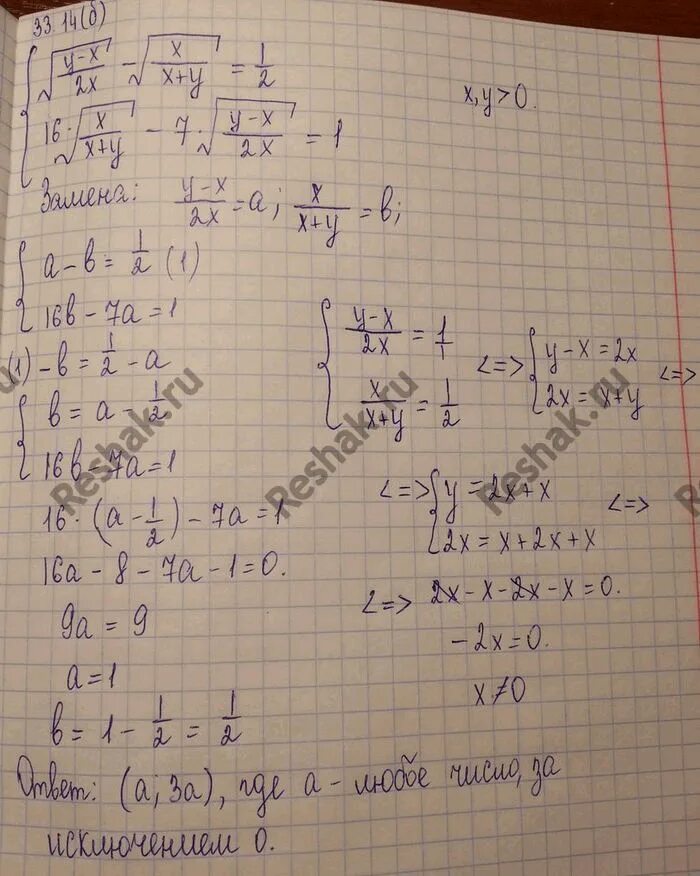 33.14(б)
{ √((y-x)/(2x)) - √(x/(x+y)) = 1/2
16·√(x/(x+y)) - 7·√((y-x)/(2x)) = 1
x,y>0.
Замена: (y-x)/(2x) = a; x/(x+y) = b;
{ a-b = 1/2 (1)
16b - 7a = 1
(1) -b = 1/2 - a
{ b = a - 1/2
16b - 7a = 1
16·(a - 1/2) - 7a = 1
16a - 8 - 7a - 1 = 0.
9a = 9
a = 1
b = 1 - 1/2 = 1/2
{ (y-x)/(2x) = 1/1
x/(x+y) = 1/2
<=> { y-x = 2x
2x = x+y <=>
<=> { y = 2x+x
2x = x+2x+x <=>
<=> 2x-x-2x-x = 0.
-2x = 0.
x≠0
Ответ: (a; 3a), где a - любое число, за
исключением 0.
Reshak.ru
Reshak.ru
Reshak.ru